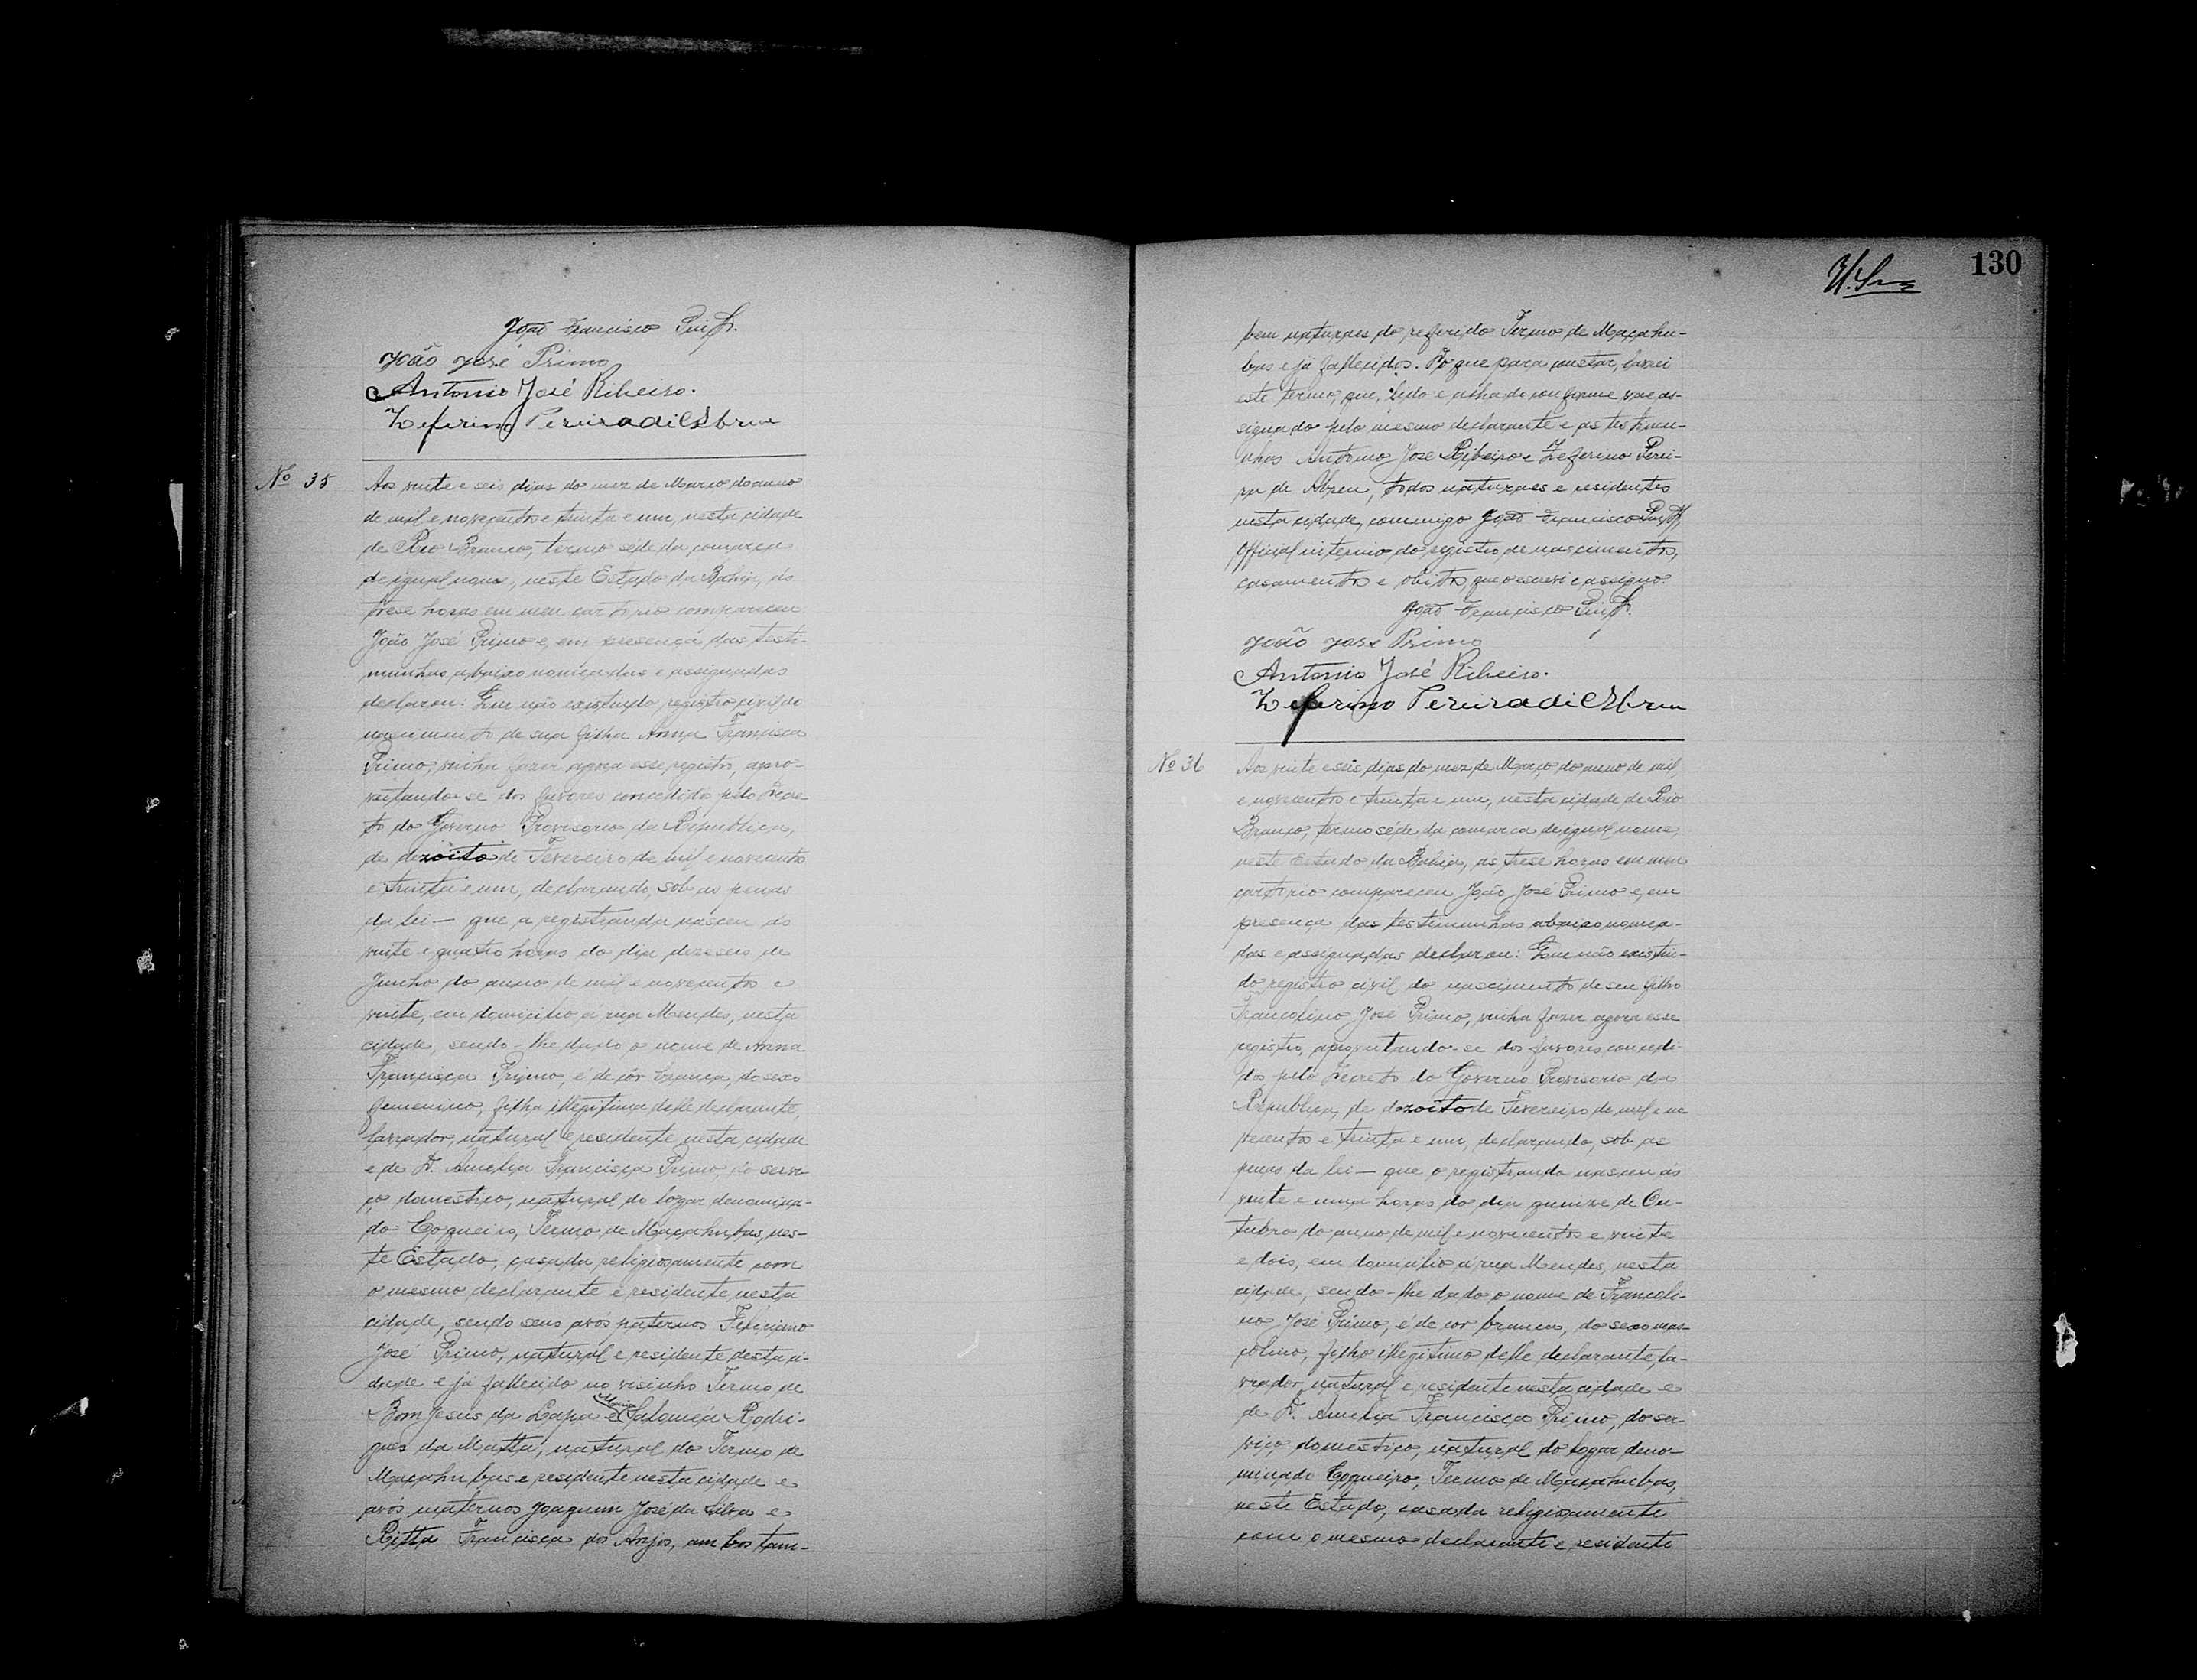 João Francisco
João José Primo
Antonio José Ribeiro.
Zeferino Pereira di Abreu
Nº 35
Aos vinte e seis dias do mez de Março do anno
de mil e novecentos e trinta e um, nesta cidade
de Rio Branco, termo séde da comarca
de igual nome, neste Estado da Bahia, ás
trese horas em meu cartorio compareceu
João José Primo e, em presença das teste-
munhas abaixo nomeadas e assignadas
declarou: Que não existindo registro civil do
nascimento de sua filha Anna Francisca
Primo, vinha fazer agora esse registro, apro-
veitando-se dos favores concedidos pelo Decre-
to do Governo Provisorio da Republica,
de dezoito de Fevereiro de mil e novecentos
e trinta e um, declarando, sob as penas
da lei — que a registranda nasceu ás
vinte e quatro horas do dia dezeseis de
Junho do anno de mil e novecentos e
vinte, em domicilio á rua Mendes, nesta
cidade, sendo-lhe dado o nome de Anna
Francisca Primo, é de côr branca, do sexo
femenino, filha illegitima delle declarante,
lavrador, natural e residente nesta cidade
e de D. Amelia Francisca Primo, do servi-
ço domestico, natural do logar denomina-
do Coqueiro, Termo de Macahubas, nes-
te Estado, casada religiosamente com
o mesmo declarante e residente nesta
cidade, sendo seus avós paternos Feliciano
José Primo, natural e residente desta ci-
dade e já fallecido no visinho Termo de
Bom Jesus da Lapa e Maria Saloméa Rodri-
gues da Matta, natural do Termo de
Macahubas e residente nesta cidade e
avós maternos Joaquim José da Silva e
Ritta Francisca dos Anjos, ambos tam-
130
bem naturaes do referido Termo de Macahu-
bas e já fallecidos. Do que para constar, lavrei
este termo, que, lido e achado conforme vae as-
signado pelo mesmo declarante e as testemu-
nhas Antonio José Ribeiro e Zeferino Perei-
ra de Abreu, todos naturaes e residentes
nesta cidade, commigo João Francisco
Official interino do registro de nascimentos,
casamentos e obitos, que o escrevi e assigno.
João Francisco
João José Primo
Antonio José Ribeiro.
Zeferino Pereira di Abreu
Nº 36
Aos vinte e seis dias do mez de Março do anno de mil
e novecentos e trinta e um, nesta cidade de Rio
Branco, termo séde da comarca de igual nome,
neste Estado da Bahia, as trese horas em meu
cartorio compareceu João José Primo e, em
presença das testemunhas abaixo nomea-
das e assignadas declarou: Que não existin-
do registro civil do nascimento de seu filho
Francolino José Primo, vinha fazer agora esse
registro, aproveitando-se dos favores concedi-
dos pelo Decreto do Governo Provisorio da
Republica, de dezoito de Fevereiro de mil e no
vecentos e trinta e um, declarando, sob as
penas da lei — que o registrando nasceu as
vinte e uma horas do dia quinze de Ou-
tubro do anno de mil e novecentos e vinte
e dois, em domicilio á rua Mendes, nesta
cidade, sendo-lhe dado o nome de Francoli-
no José Primo, é de cor branca, do sexo mas-
culino, filho illegitimo delle declarante, la-
vrador, natural e residente nesta cidade e
de D. Amelia Francisca Primo, do ser-
viço domestico, natural do logar deno-
minado Coqueiro, Termo de Macahubas,
neste Estado, casada religiosamente
com o mesmo declarante e residente